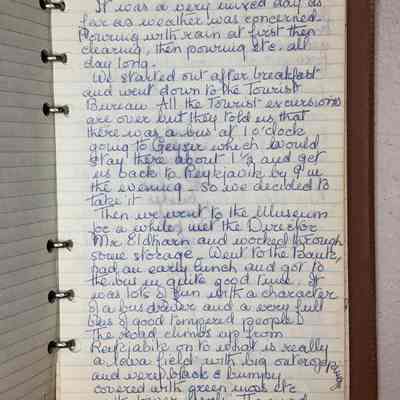 It was a very mixed day as
far as weather was concerned.
Pouring with rain at first then
clearing, then pouring etc. all
day long.
We started out after breakfast
and went down to the Tourist
Bureau. All the Tourist excursions
are over but they told us that
there was a bus at 1 o'clock
going to Geysir which would
stay there about 1½ and get
us back to Reykjavik by 9 in
the evening - so we decided to
take it
Then we went to the Museum
for a while met the Director
Mr Eldharn and worked through
some storage - Went to the Bank,
had an early lunch and got to
the bus in quite good time. It
was lots of fun with a character
of a bus driver and a very full
bus of good tempered people.
The road climbs up from
Reykjavik on to what is really
a lava field with big outcroppings
and very black & bumpy
covered with green moss etc